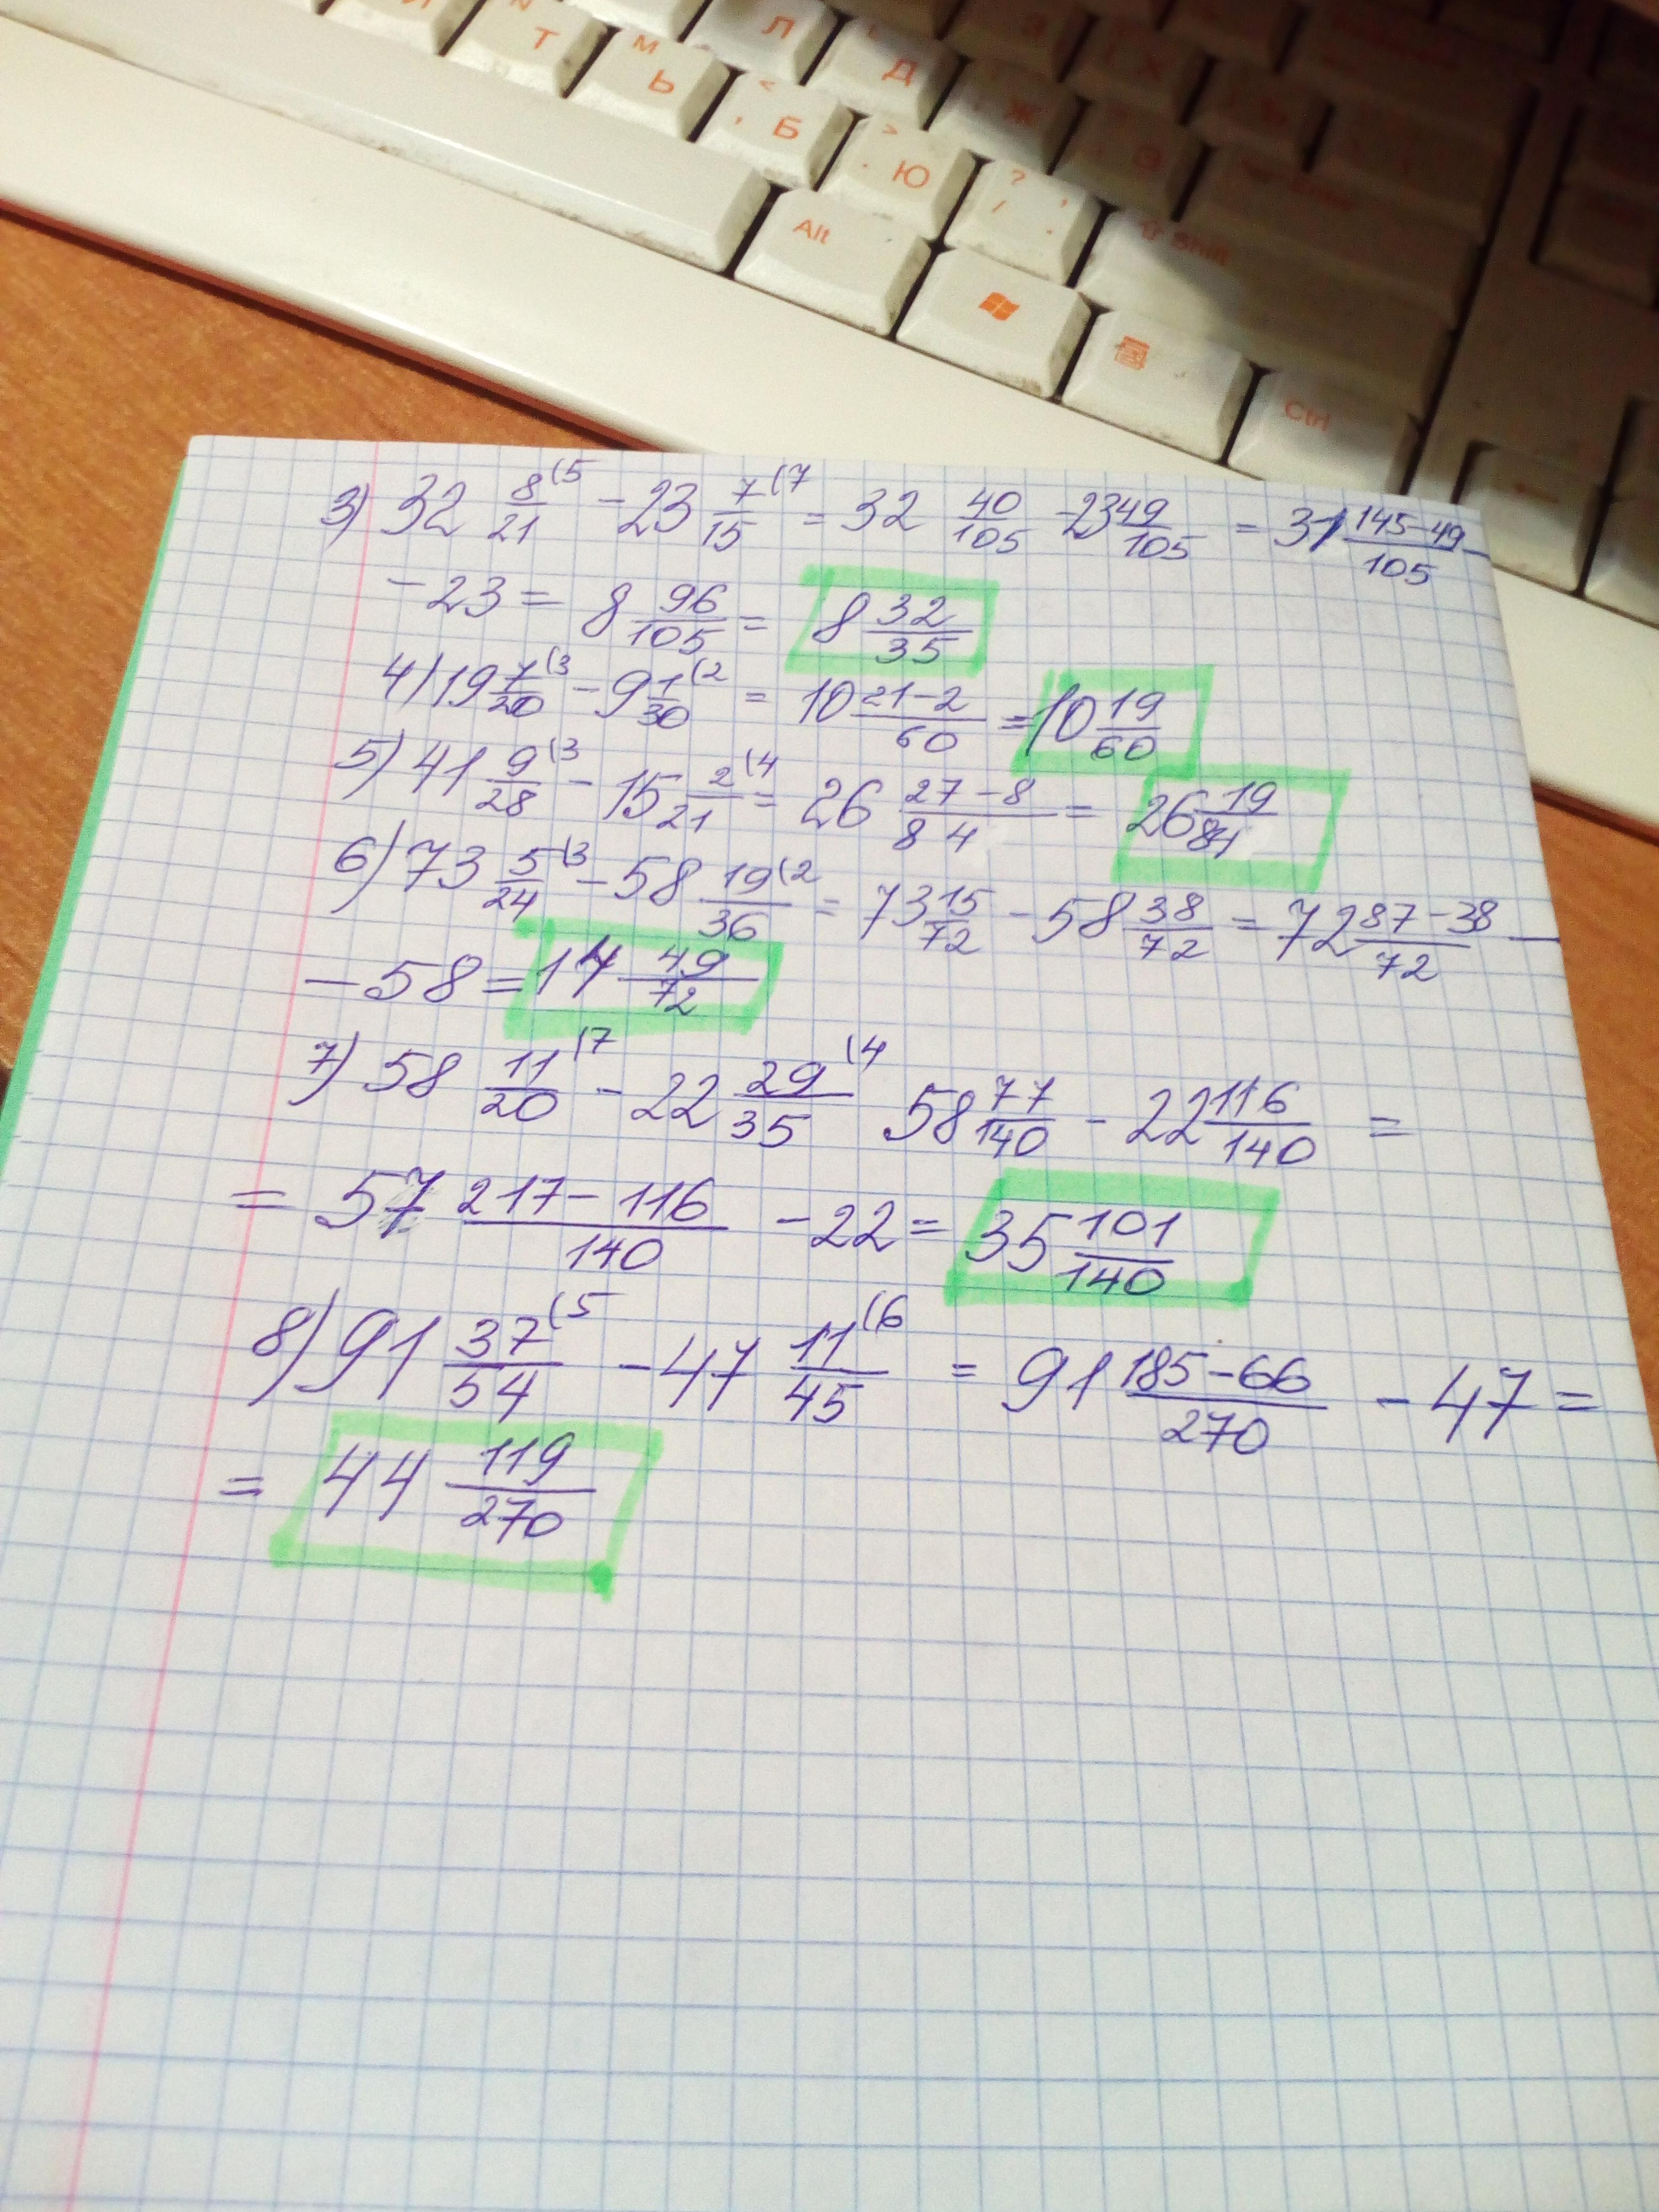 N Т
М Ь
Л
Д
< , Б
> . Ю
? / , .
Ж
Э
Alt
⇧ Shift
Ctrl
3) 32 8/21 (5 - 23 7/15 (7 = 32 40/105 - 23 49/105 = 31 145-49/105 -
- 23 = 8 96/105 = 8 32/35
4) 19 7/20 (3 - 9 1/30 (2 = 10 21-2/60 = 10 19/60
5) 41 9/28 (3 - 15 2/21 (4 = 26 27-8/84 = 26 19/84
6) 73 5/24 (3 - 58 19/36 (2 = 73 15/72 - 58 38/72 = 72 87-38/72 -
- 58 = 14 49/72
7) 58 11/20 (7 - 22 29/35 (4 58 77/140 - 22 116/140 =
= 57 217-116/140 - 22 = 35 101/140
8) 91 37/54 (5 - 47 11/45 (6 = 91 185-66/270 - 47 =
= 44 119/270